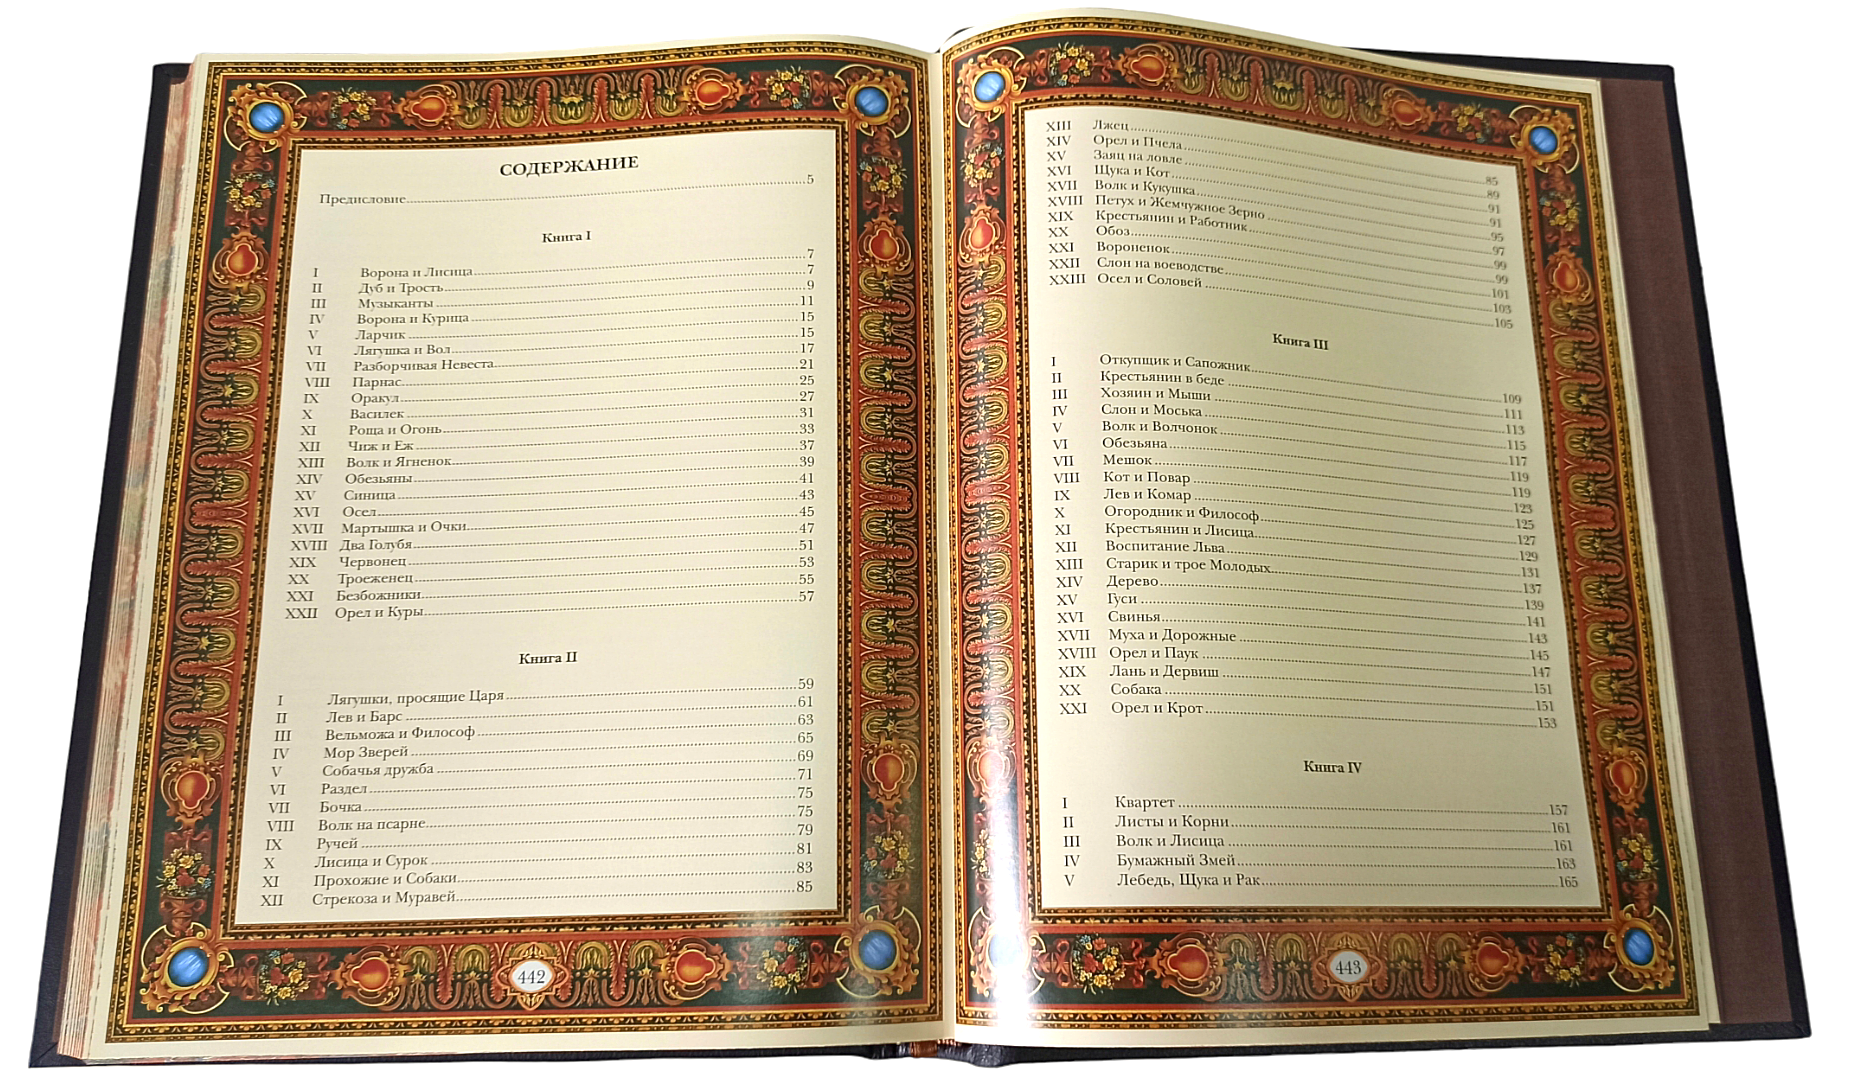 СОДЕРЖАНИЕ
Предисловие 5
Книга I
I Ворона и Лисица 7
II Дуб и Трость 7
III Музыканты 9
IV Ворона и Курица 11
V Ларчик 15
VI Лягушка и Вол 15
VII Разборчивая Невеста 17
VIII Парнас 21
IX Оракул 25
X Василек 27
XI Роща и Огонь 31
XII Чиж и Еж 33
XIII Волк и Ягненок 37
XIV Обезьяны 39
XV Синица 41
XVI Осел 43
XVII Мартышка и Очки 45
XVIII Два Голубя 47
XIX Червонец 51
XX Троеженец 53
XXI Безбожники 55
XXII Орел и Куры 57
Книга II
I Лягушки, просящие Царя 59
II Лев и Барс 61
III Вельможа и Философ 63
IV Мор Зверей 65
V Собачья дружба 69
VI Раздел 71
VII Бочка 75
VIII Волк на псарне 75
IX Ручей 79
X Лисица и Сурок 81
XI Прохожие и Собаки 83
XII Стрекоза и Муравей 85
442
XIII Лжец 85
XIV Орел и Пчела 89
XV Заяц на ловле 91
XVI Щука и Кот 91
XVII Волк и Кукушка 95
XVIII Петух и Жемчужное Зерно 97
XIX Крестьянин и Работник 99
XX Обоз 99
XXI Вороненок 101
XXII Слон на воеводстве 103
XXIII Осел и Соловей 105
Книга III
I Откупщик и Сапожник 109
II Крестьянин в беде 111
III Хозяин и Мыши 113
IV Слон и Моська 115
V Волк и Волчонок 117
VI Обезьяна 119
VII Мешок 119
VIII Кот и Повар 123
IX Лев и Комар 125
X Огородник и Философ 127
XI Крестьянин и Лисица 129
XII Воспитание Льва 131
XIII Старик и трое Молодых 137
XIV Дерево 139
XV Гуси 141
XVI Свинья 143
XVII Муха и Дорожные 145
XVIII Орел и Паук 147
XIX Лань и Дервиш 151
XX Собака 151
XXI Орел и Крот 153
Книга IV
I Квартет 157
II Листы и Корни 161
III Волк и Лисица 161
IV Бумажный Змей 163
V Лебедь, Щука и Рак 165
443